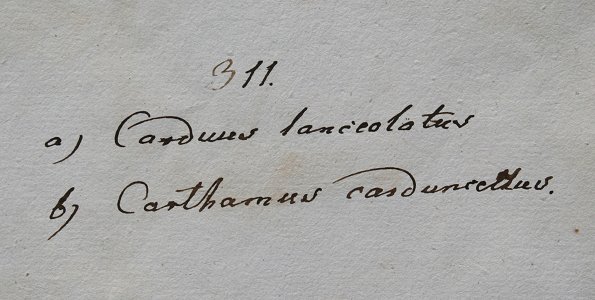 311.
a) Carduus lanceolatus
b) Carthamus carduncellus.